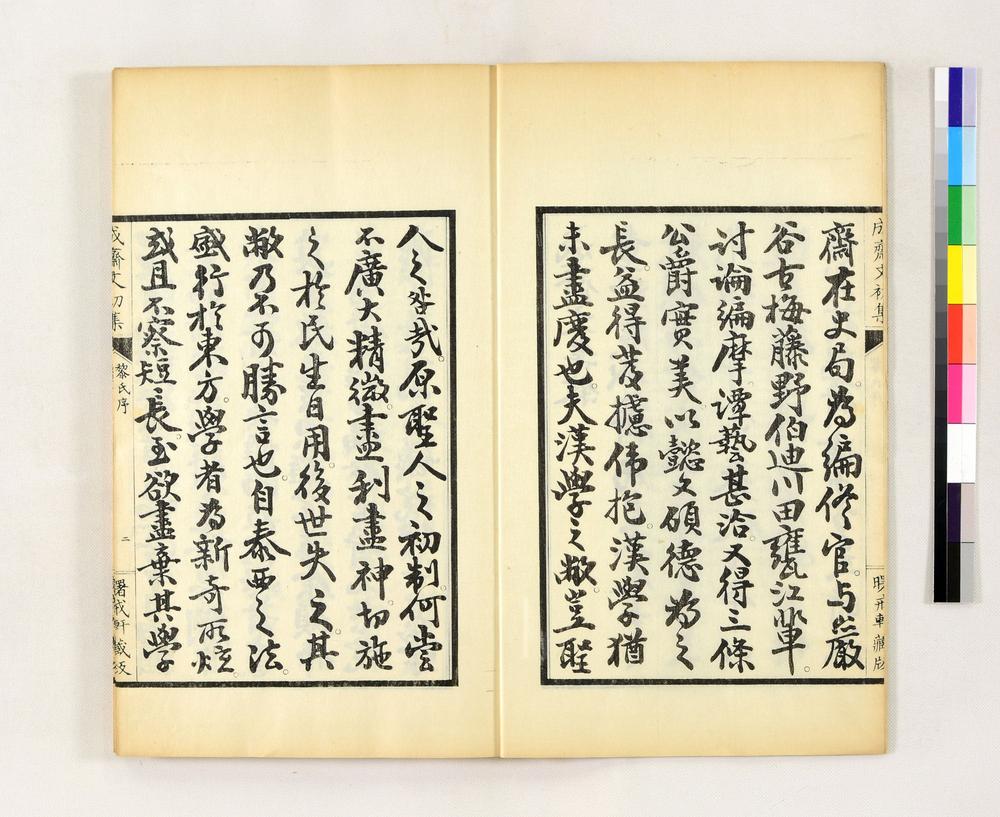 成齋文初集
齋在史局為編修官与巖
谷古梅藤野伯迪川田甕江輩
討論編摩譚藝甚洽又得三條
公爵實美以懿文碩德為之
長益得發攄偉抱漢學猶
未盡廢也夫漢學之敝豈聖
人之咎哉原聖人之初制何嘗
不廣大精微盡利盡神切施
之於民生日用後世失之其
敝乃不可勝言也自泰西之法
盛行於東方學者為新奇所炫
或且不察短長至欲盡棄其學
成齋文初集
黎氏序
二
軒藏版